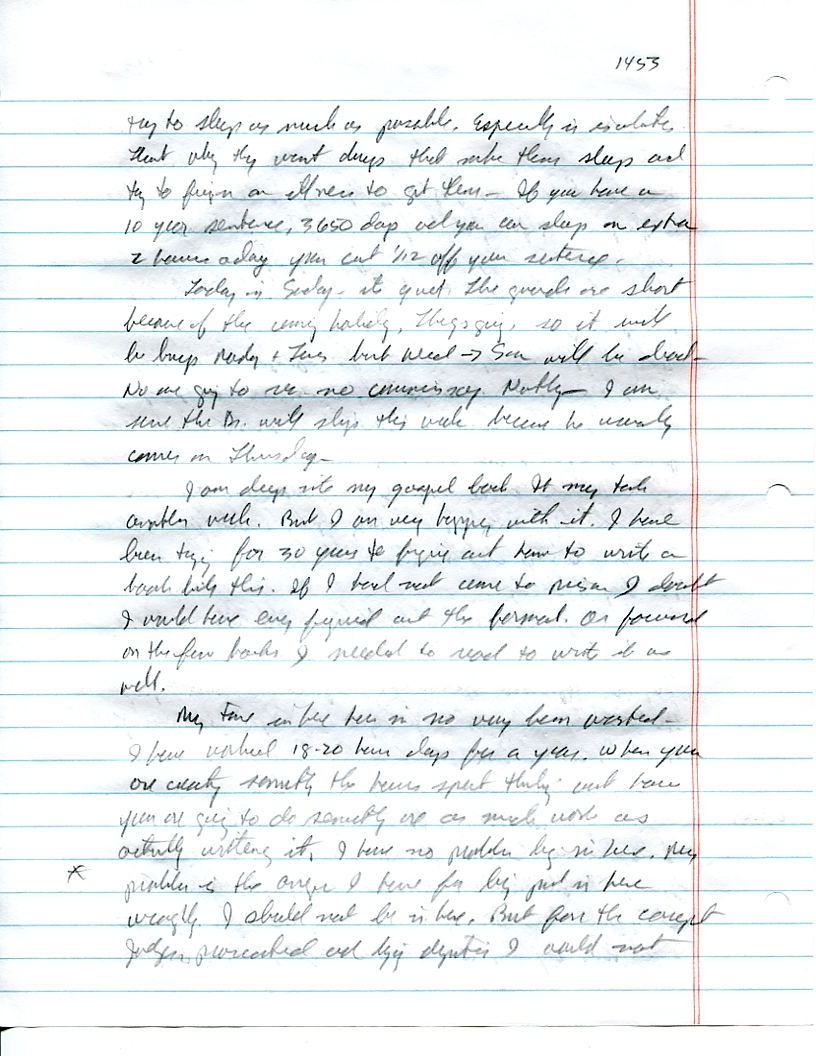 1453
try to sleep as much as possible. Especially in isolation
that why they want drugs that make them sleep and
try to feign an illness to get them — If you have a
10 year sentence, 3650 days and you can sleep an extra
2 hours a day you cut 1/12 off your sentence.
Today is Sunday - its quiet. The guards are short
because of the coming holiday, Thksgvg, so it will
be busy Monday + Tues but Wed → Sun will be dead -
No one going to rec. no commissary. Nothing — I am
sure the Dr. will skip this week because he usually
comes on Thursday -
I am deep into my gospel book It may take
another week. But I am very happy with it. I have
been trying for 30 years to figure out how to write a
book like this. If I had not come to prison I doubt
I would have ever figured out the format. Or focused
on the few books I needed to read to write it as
well.
My time in here has in no way been wasted -
I have worked 18-20 hour days for a year. When you
are creating something the hours spent thinking out how
you are going to do something are as much work as
actually writing it. I have no problem being in here. My
* problem is the anger I have for being put in here
wrongly. I should not be in here. But for the corrupt
Judges, and lying deputies I would not